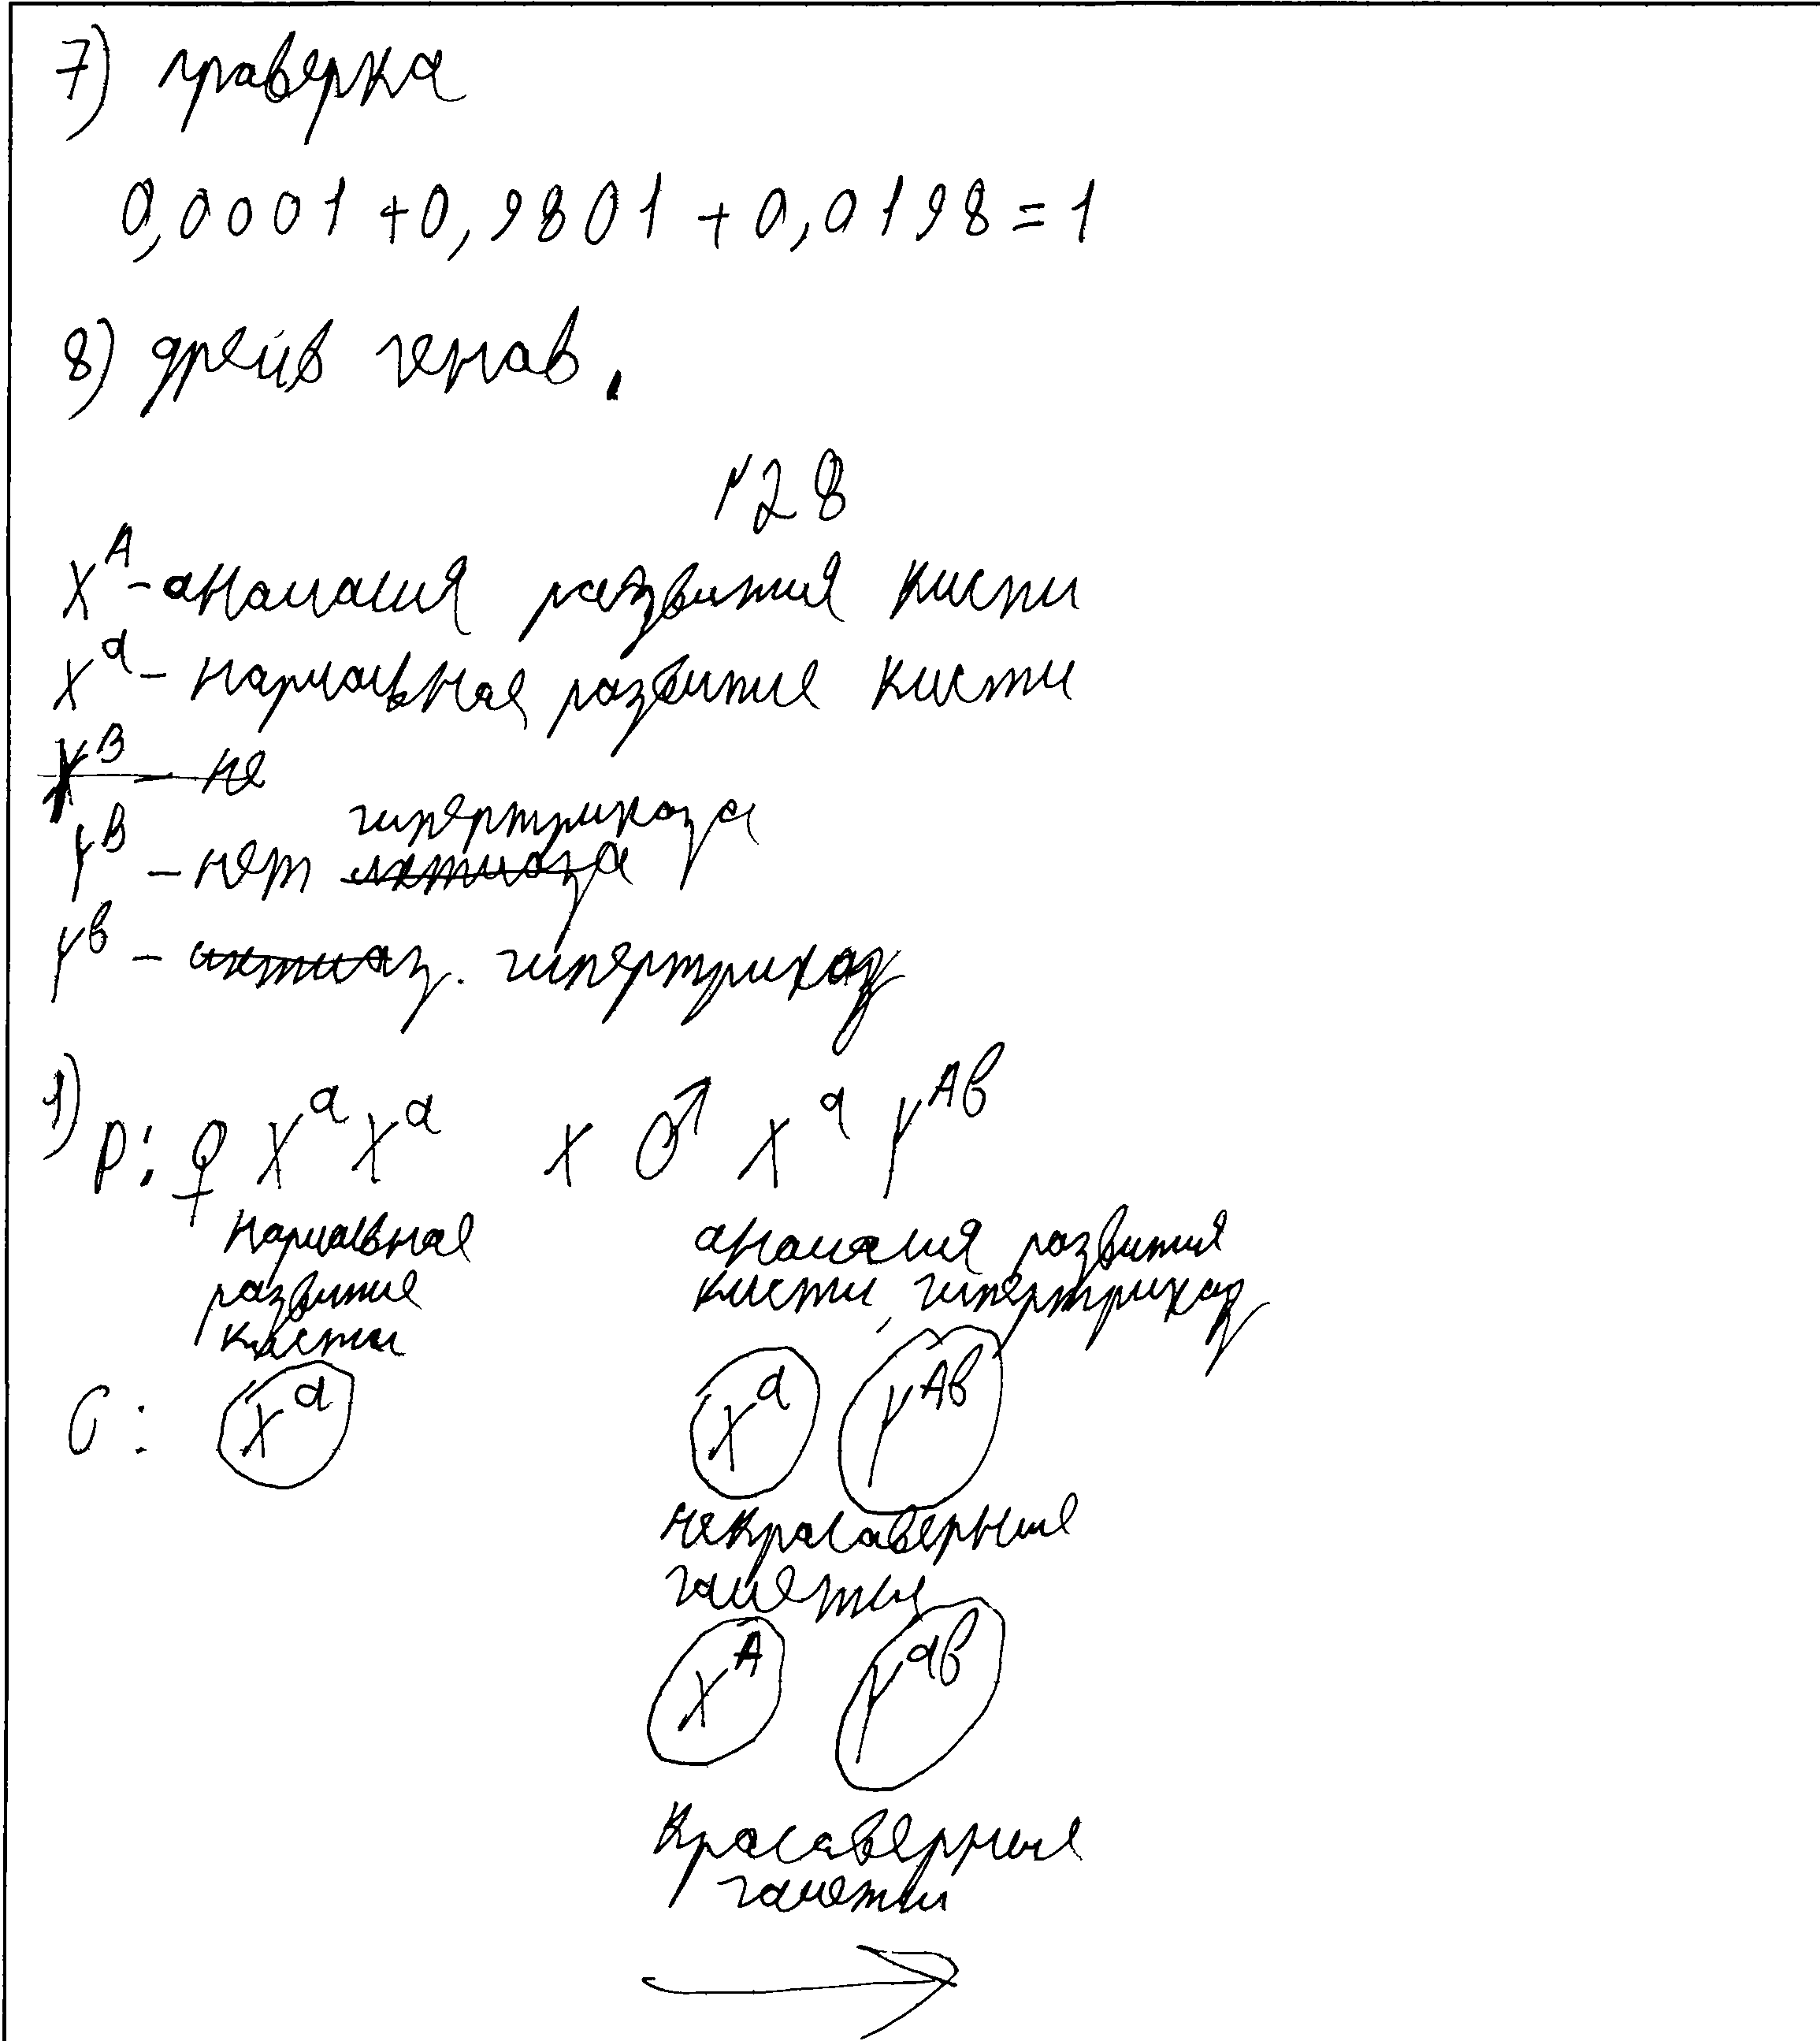 7) праверка
0,0001 + 0,9801 + 0,0198 = 1
8) дрейв генав.
№28
X^A - аномалия развития кисти
X^a - нармальное развитие кисти
Y^B - не
гипертрихоза
Y^B - нет ихтиоза
Y^b - ихтиоз. гипертрихоз
1) P: ♀ X^a X^a x ♂ X^a Y^Ab
нармальное
развитие
кисти
аномалия развития
кисти, гипертрихоз
G: X^a X^a Y^Ab
некрасаверные
гаметы
X^A Y^ab
Красаверные
гаметы
→